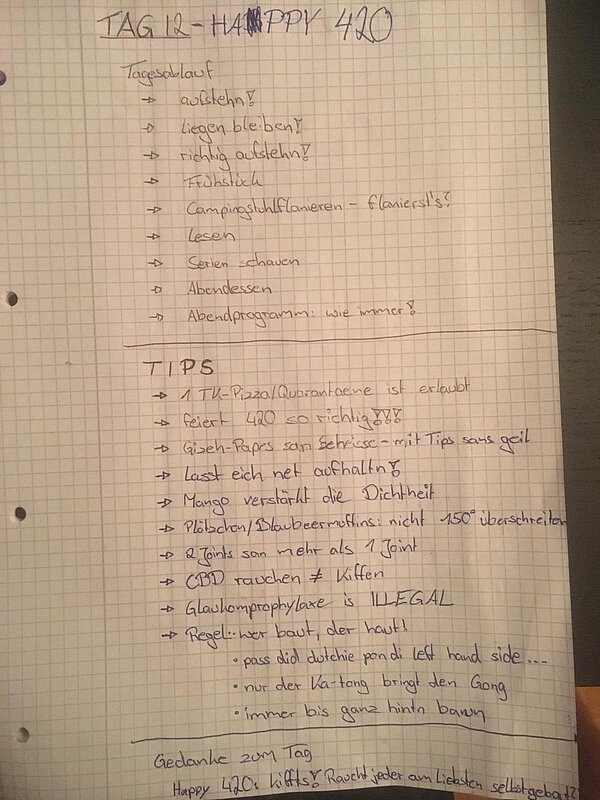 TAG 12 - HAPPY 420
Tagesablauf
→ aufstehn!
→ liegen bleiben!
→ richtig aufstehn!
→ Frühstück
→ Campingstuhlflanieren - flanierst's?
→ Lesen
→ Serien schauen
→ Abendessen
→ Abendprogramm: wie immer!
TIPS
→ 1 TK-Pizza/Quarantaene ist erlaubt
→ feiert 420 so richtig!!!
→ Gizeh-Paprs san Scheisse - mit Tips sans geil
→ Lasst eich net aufhaltn!
→ Mango verstärkt die Dichtheit
→ Plätzchen/Blaubeermuffins: nicht 150° überschreiten
→ 2 Joints san mehr als 1 Joint
→ CBD rauchen ≠ Kiffen
→ Glaukomprophylaxe is ILLEGAL
→ Regel: wer baut, der haut!
• pass did dutchie pon di left hand side...
• nur der Ka-tong bringt den Gong
• immer bis ganz hintn baun
Gedanke zum Tag
Happy 420: kiffts! Raucht jeder am Liebsten selbstgebaut?